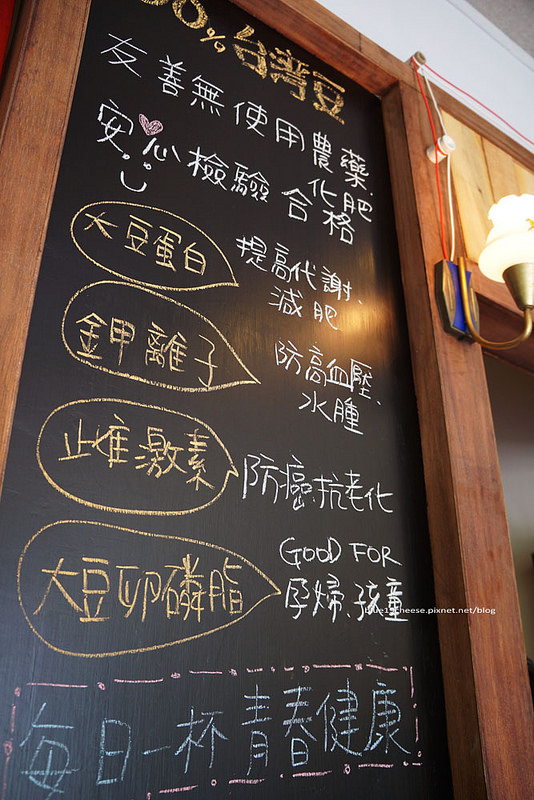 00% 台灣豆
友善無使用農藥、化肥
安心檢驗合格
大豆蛋白
提高代謝、
減肥
金甲離子
防高血壓、
水腫
雌激素
防癌.抗老化
大豆卵磷脂
GOOD FOR
孕婦、孩童
每日一杯青春健康
blue1cheese.pixnet.net/blog